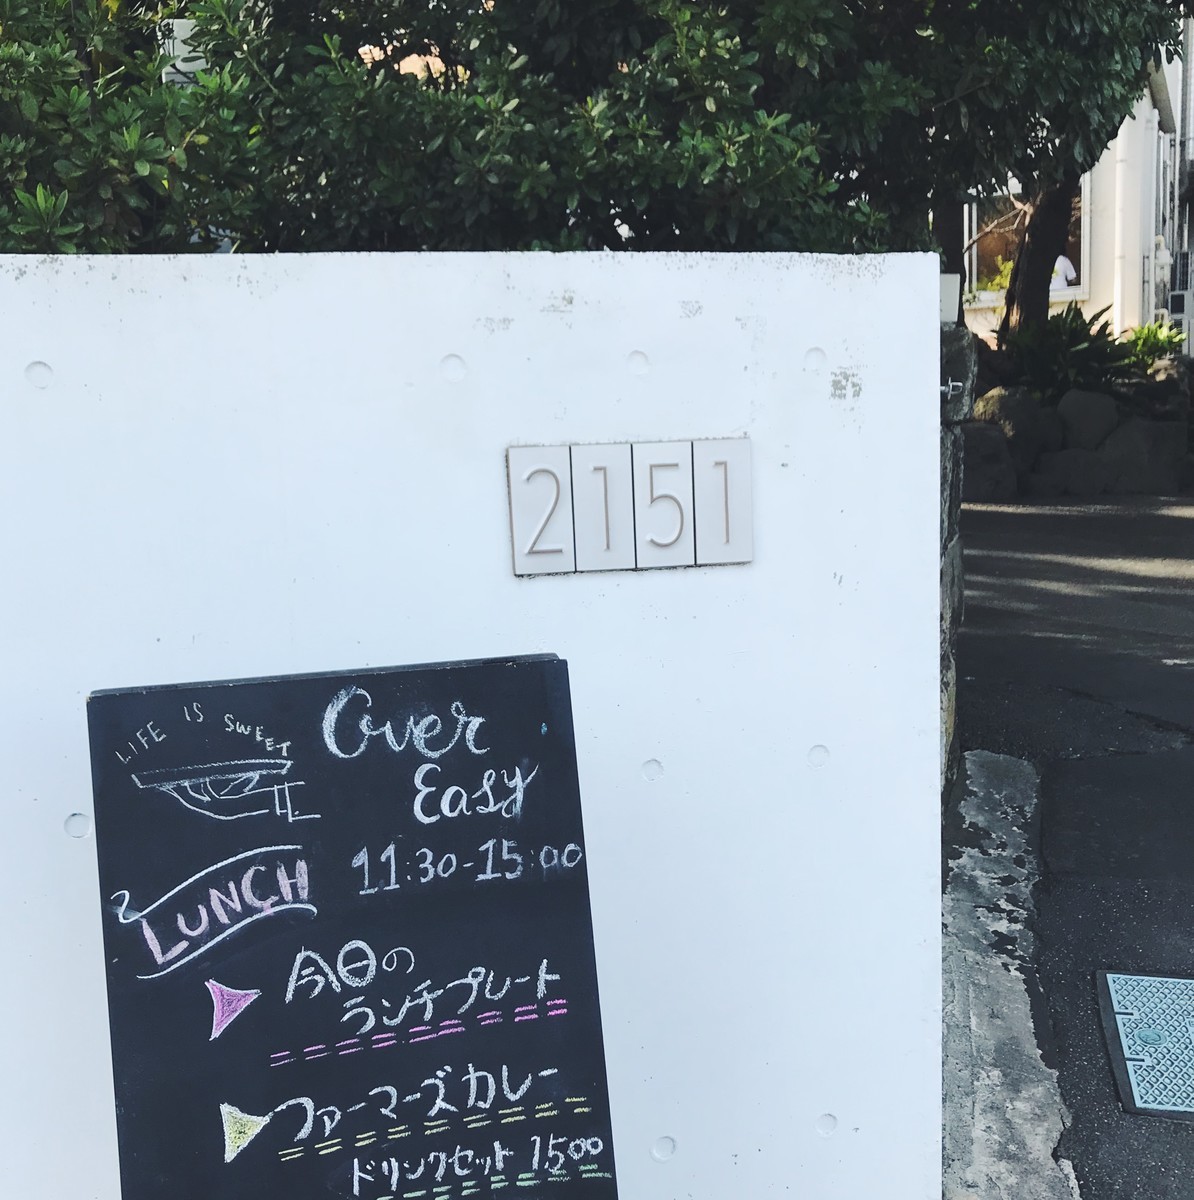 2151
LIFE IS SWEET
Over
Easy
LUNCH
11:30-15:00
今日の
ランチプレート
ファーマーズカレー
ドリンクセット 1500